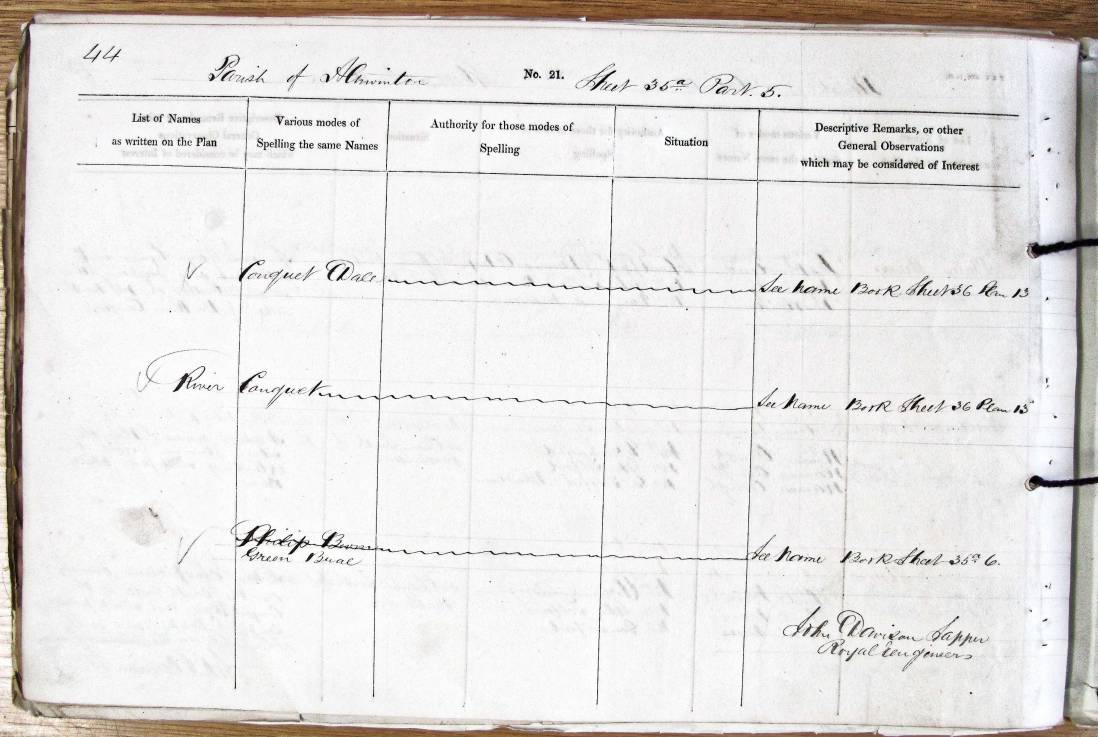 44
Parish of Alwinton No. 21. Sheet 35a Part. 5.
List of Names
as written on the Plan
Various modes of
Spelling the same Names
Authority for those modes of
Spelling
Situation
Descriptive Remarks, or other
General Observations
which may be considered of Interest
Coquet Dale See Name Book Sheet 36 Plan 13
River Coquet See Name Book Sheet 36 Plan 13
Philip Burn
Green See Name Book Sheet 35a 6.
John Davison Sapper
Royal Engineers